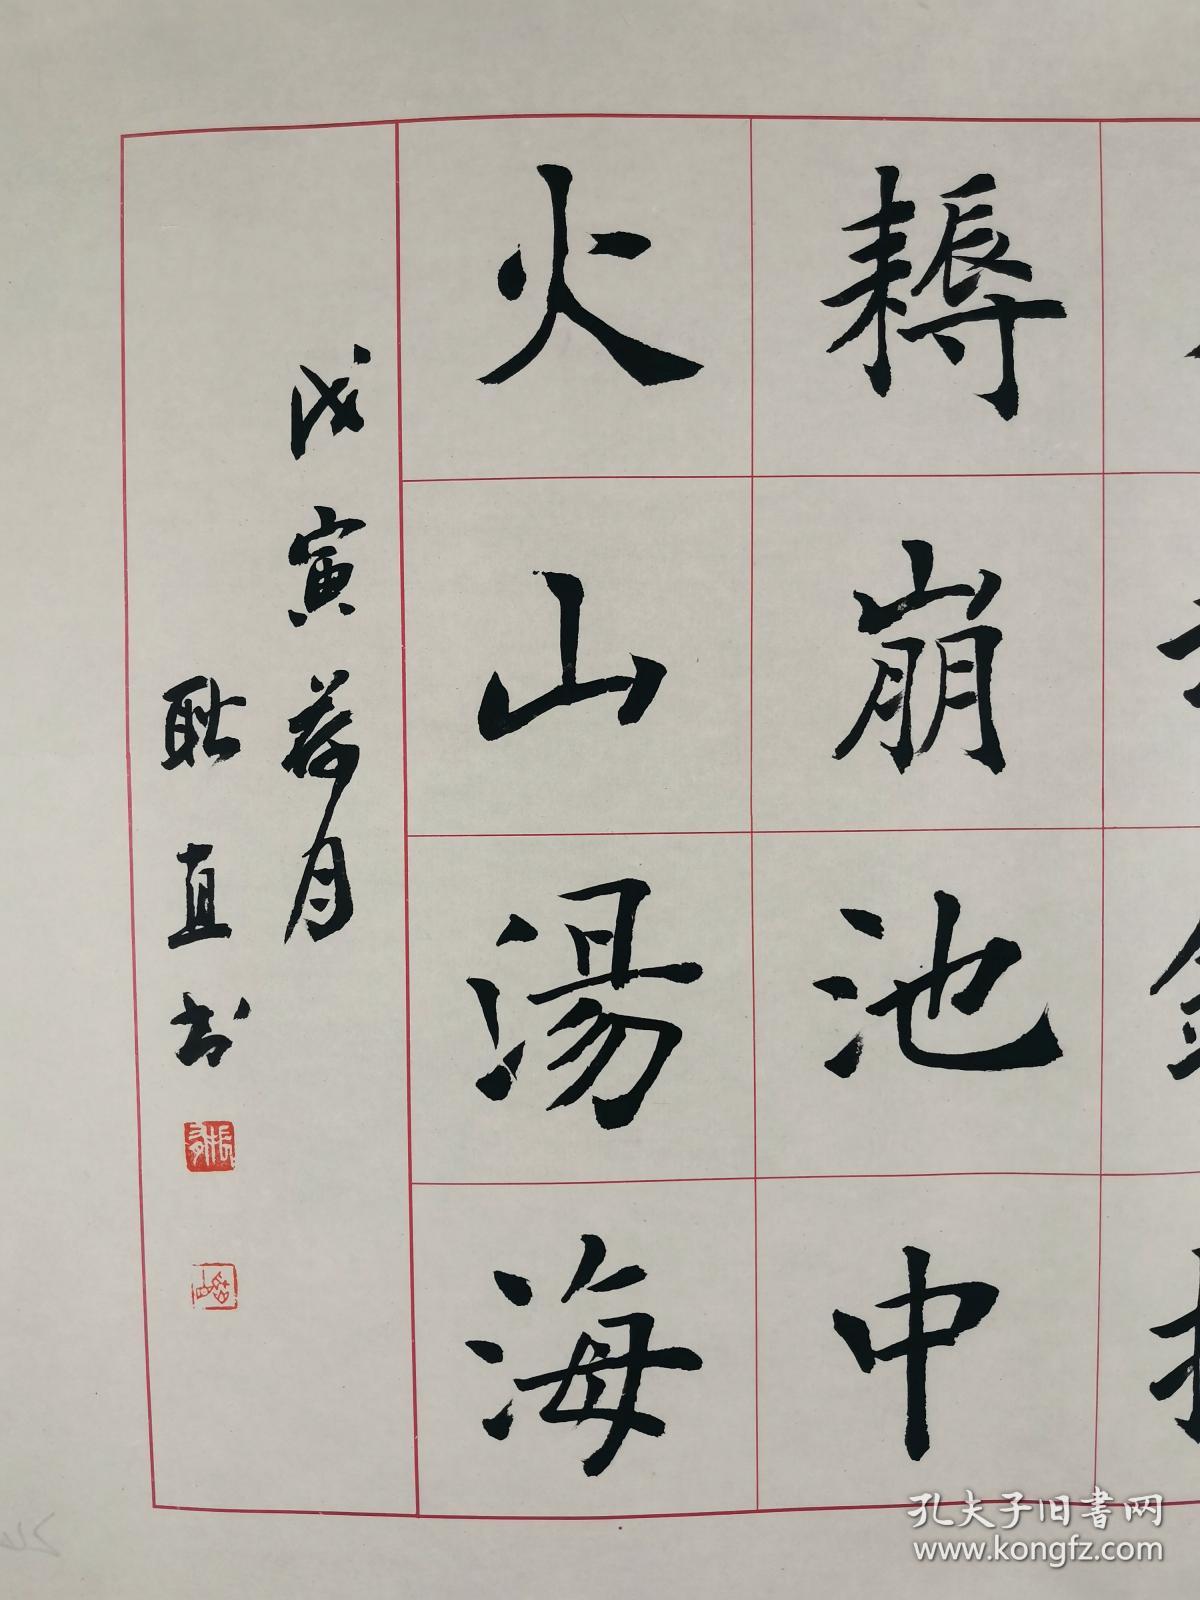 耨崩池中
火山湯海
戊寅荷月
耿直书
孔夫子旧书网
www.kongfz.com